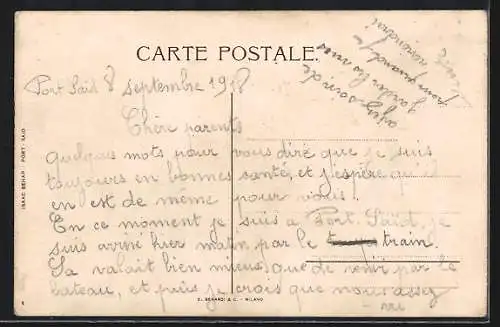 CARTE POSTALE.
Port Saïd 8 septembre 1918.
Chère parents
quelques mots pour vous dire que je suis
toujours en bonnes santé, et j'espère qu'il
en est de même pour vous!
En ce moment je suis a Port. Saïd, je
suis arrivé hier matin par le train.
Sa valait bien mieux que de venir par le
bateau, et puis je crois que nous assez
ayez soin de
garder les vues
pour quand je
reviendrai
ISAAC BEHAR PORT-SAID